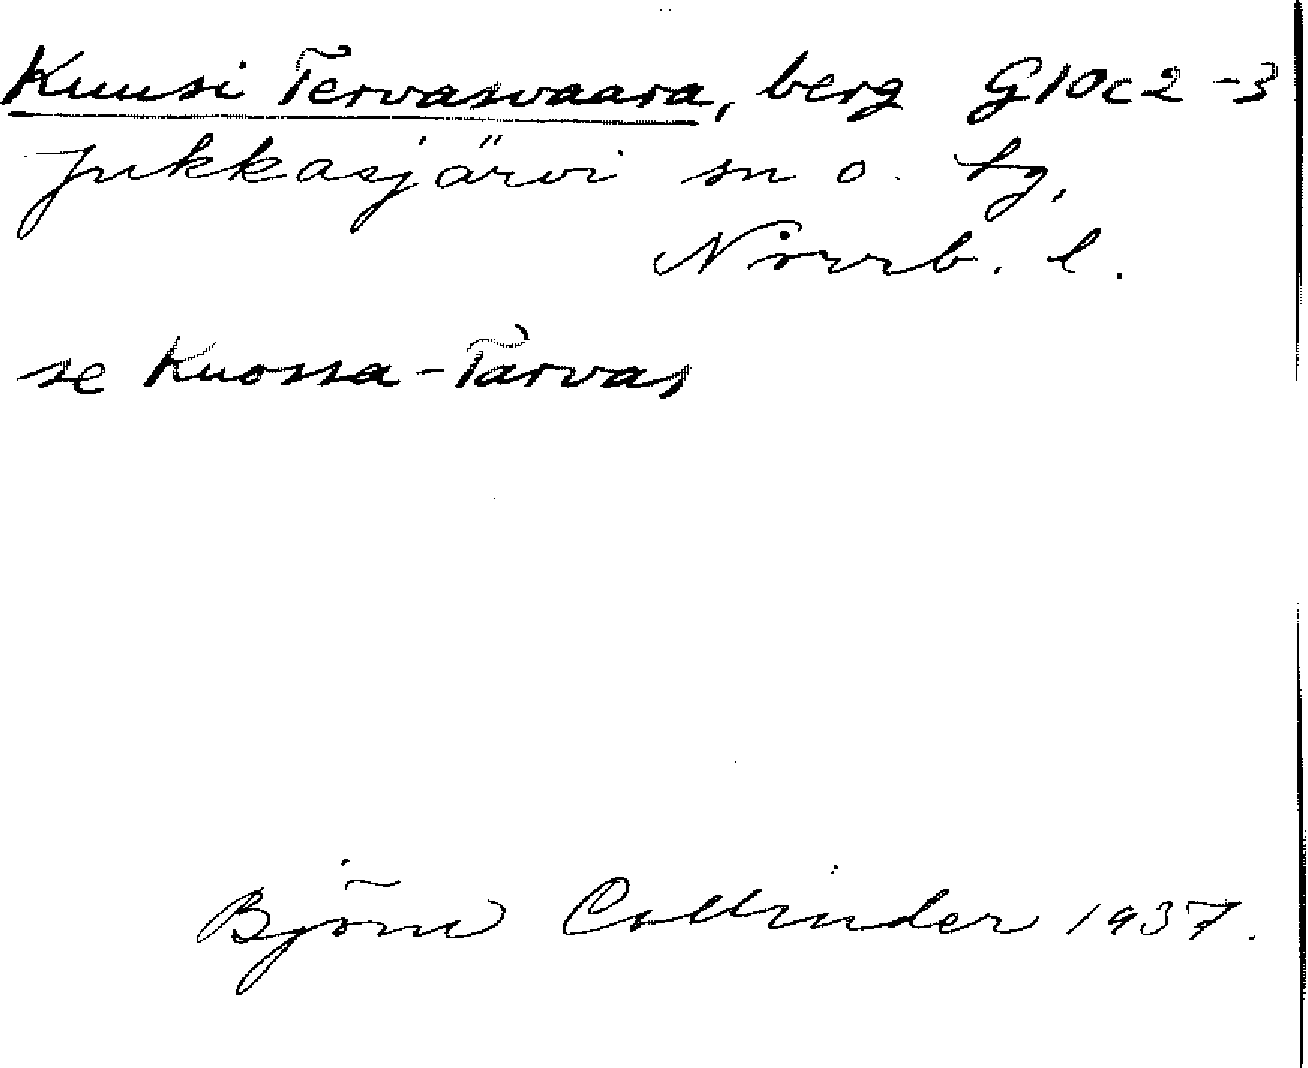 Kuusi Tervasvaara, berg G10c2-3
Jukkasjärvi sn o. tg,
Norrb. l.
se Kuossa-Tarvas
Björn Collinder 1937.